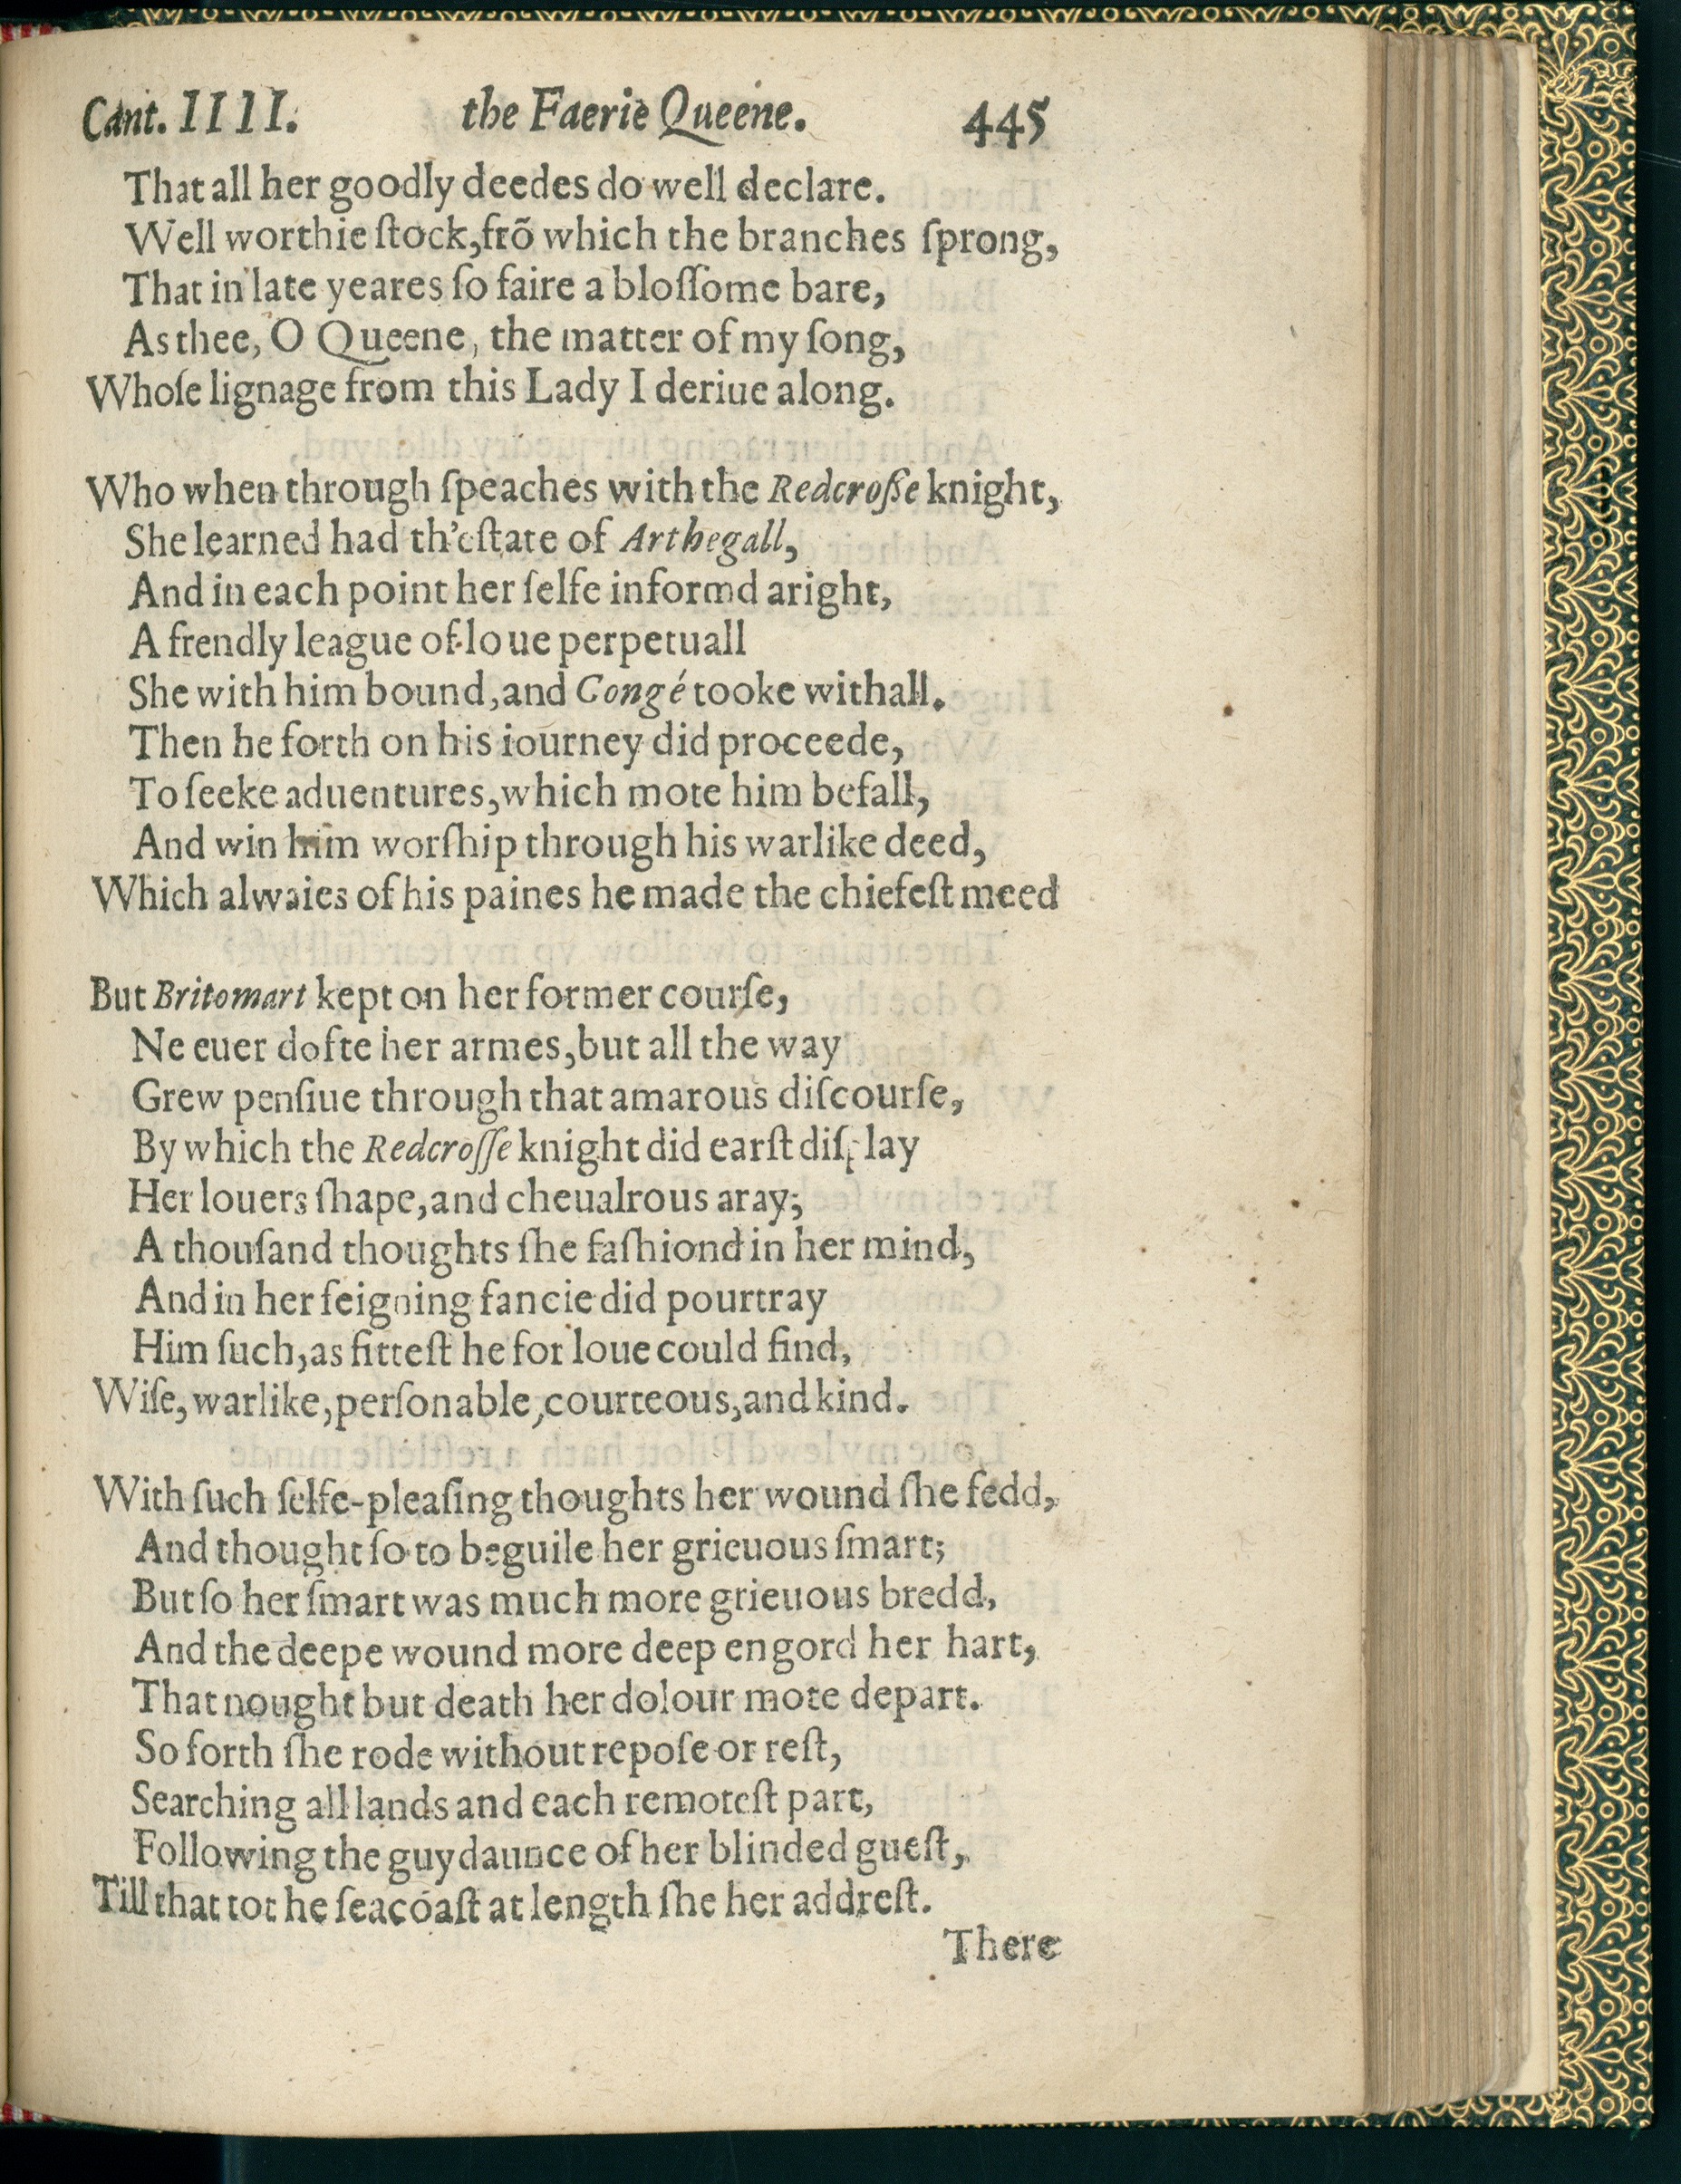 Cant. IIII. the Faerie Queene. 445
That all her goodly deedes do well declare.
Well worthie ſtock, frõ which the branches ſprong,
That in late yeares ſo faire a bloſſome bare,
As thee, O Queene, the matter of my ſong,
Whoſe lignage from this Lady I deriue along.
Who when through ſpeaches with the Redcroſſe knight,
She learned had th'eſtate of Arthegall,
And in each point her ſelfe informd aright,
A frendly league of loue perpetuall
She with him bound, and Congé tooke withall.
Then he forth on his iourney did proceede,
To ſeeke aduentures, which mote him befall,
And win him worſhip through his warlike deed,
Which alwaies of his paines he made the chiefeſt meed
But Britomart kept on her former courſe,
Ne euer dofte her armes, but all the way
Grew penſiue through that amarous diſcourſe,
By which the Redcroſſe knight did earſt diſplay
Her louers ſhape, and cheualrous aray;
A thouſand thoughts ſhe faſhiond in her mind,
And in her feigning fancie did pourtray
Him ſuch, as fitteſt he for loue could find,
Wiſe, warlike, perſonable, courteous, and kind.
With ſuch ſelfe-pleaſing thoughts her wound ſhe fedd,
And thought ſo to beguile her grieuous ſmart;
But ſo her ſmart was much more grieuous bredd,
And the deepe wound more deep engord her hart,
That nought but death her dolour mote depart.
So forth ſhe rode without repoſe or reſt,
Searching all lands and each remoteſt part,
Following the guydaunce of her blinded gueſt,
Till that tot he ſeacoaſt at length ſhe her addreſt.
There